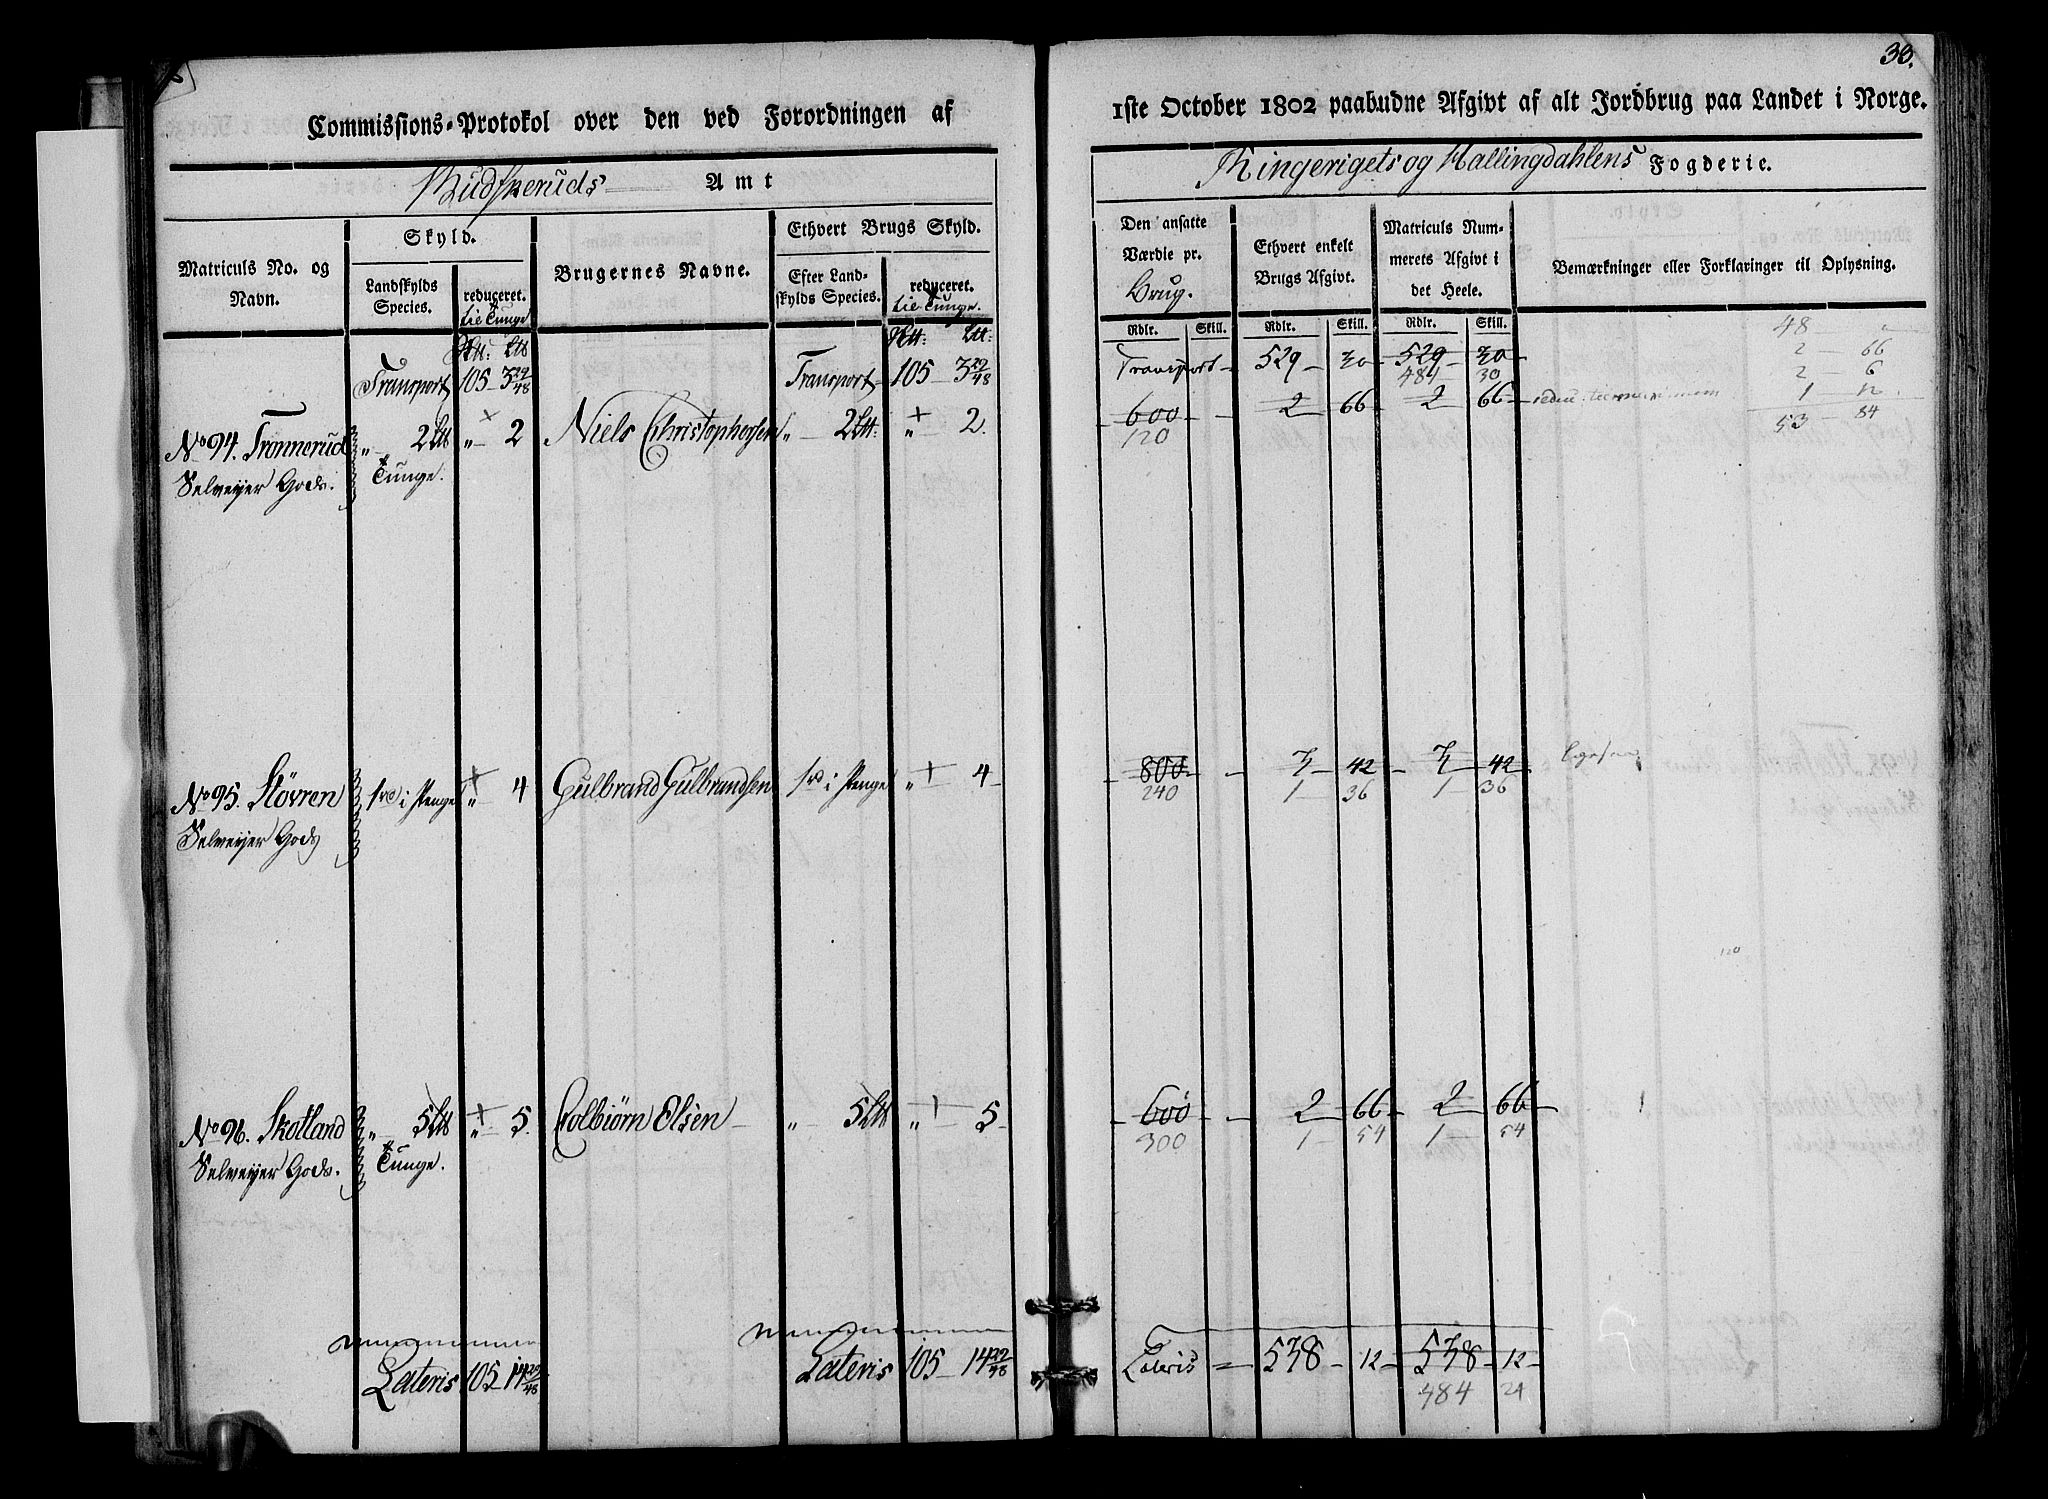 33.
Commissions-Protokol over den ved Forordningen af
1ste October 1802 paabudne Afgivt af alt Jordbrug paa Landet i Norge.
Budsƙeruds Amt
Ringerigets og Hallingdahlens Fogderie.
Matriculs No. og Navn.
Skyld.
Landskylds Species.
reduceret. til Tunge
Brugernes Navne.
Ethvert Brugs Skyld.
Efter Landskylds Species.
reduceret. til Tunge.
Den ansatte Værdie pr. Brug.
Ethvert enkelt Brugs Afgivt.
Matriculs Nummerets Afgivt i det Heele.
Bemærkninger eller Forklaringer til Oplysning.
Rdlr. Skill. Rdlr. Skill. Rdlr. Skill.
Transport 105 - 3 29/48 Transport 105 - 3 29/48 Transport 529 - 30 529 - 30
484 30
48 "
2 - 66
2 - 6
1 12
53 - 84
No 94. Trønnerud " 2 Ltt " - 2 Niels Christophersen " - 2 Ltt: " - 2. 600 - 2 66 2 66
Selveyer Gods. Tunge. 120
No 95. Støvren 1 rd i Penge " 4 Gulbrand Gulbrandsen 1 rd i Penge " 4 - 800 - 3 - 42 - 3 - 42
Selveyer Gods 240 1 - 36 1 - 36
120
No 96. Skotland " 5 Ltt " 5. Colbiørn Olsen - " - 5 Ltt " - 5 - 600 - 2 - 66 - 2 - 66
Selveyer Gods. Tunge. 300 1 - 54 1 - 54
Lateris 105 - 14 29/48 Lateris 105 - 14 29/48 Lateris = 538 - 12 - 538 - 12 -
484 24